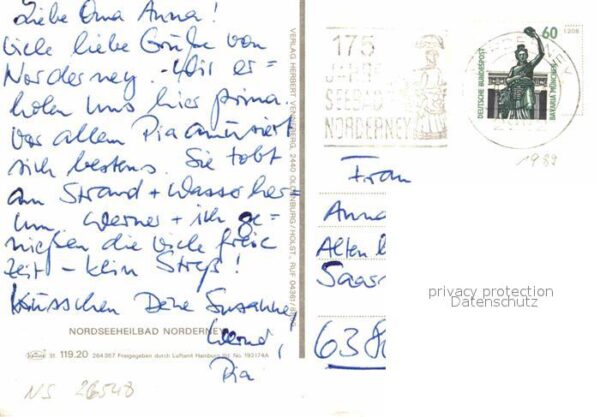 Liebe Oma Anna!
Viele liebe Grüße von
Norderney. Wir er=
holen uns hier prima.
Vor allem Pia amüsiert
sich bestens. Sie tobt
am Strand + Wasser her=
um. Werner + ich ge=
nießen die viele freie
Zeit – kein Streß!
Küsschen Deine Susanne,
Pia
NORDSEEHEILBAD NORDERNEY
St. 119.20 264367 Freigegeben durch Luftamt Hamburg
NS 26548
VERLAG HERBERT 2440 OLDENBURG/HOLST., RUF 04361/
175
JAHRE
SEEBAD
NORDERNEY
60
DEUTSCHE BUNDESPOST
BAVARIA MÜNCHEN
1989
Frau
Anna
Alten
Saar
638
privacy protection
Datenschutz